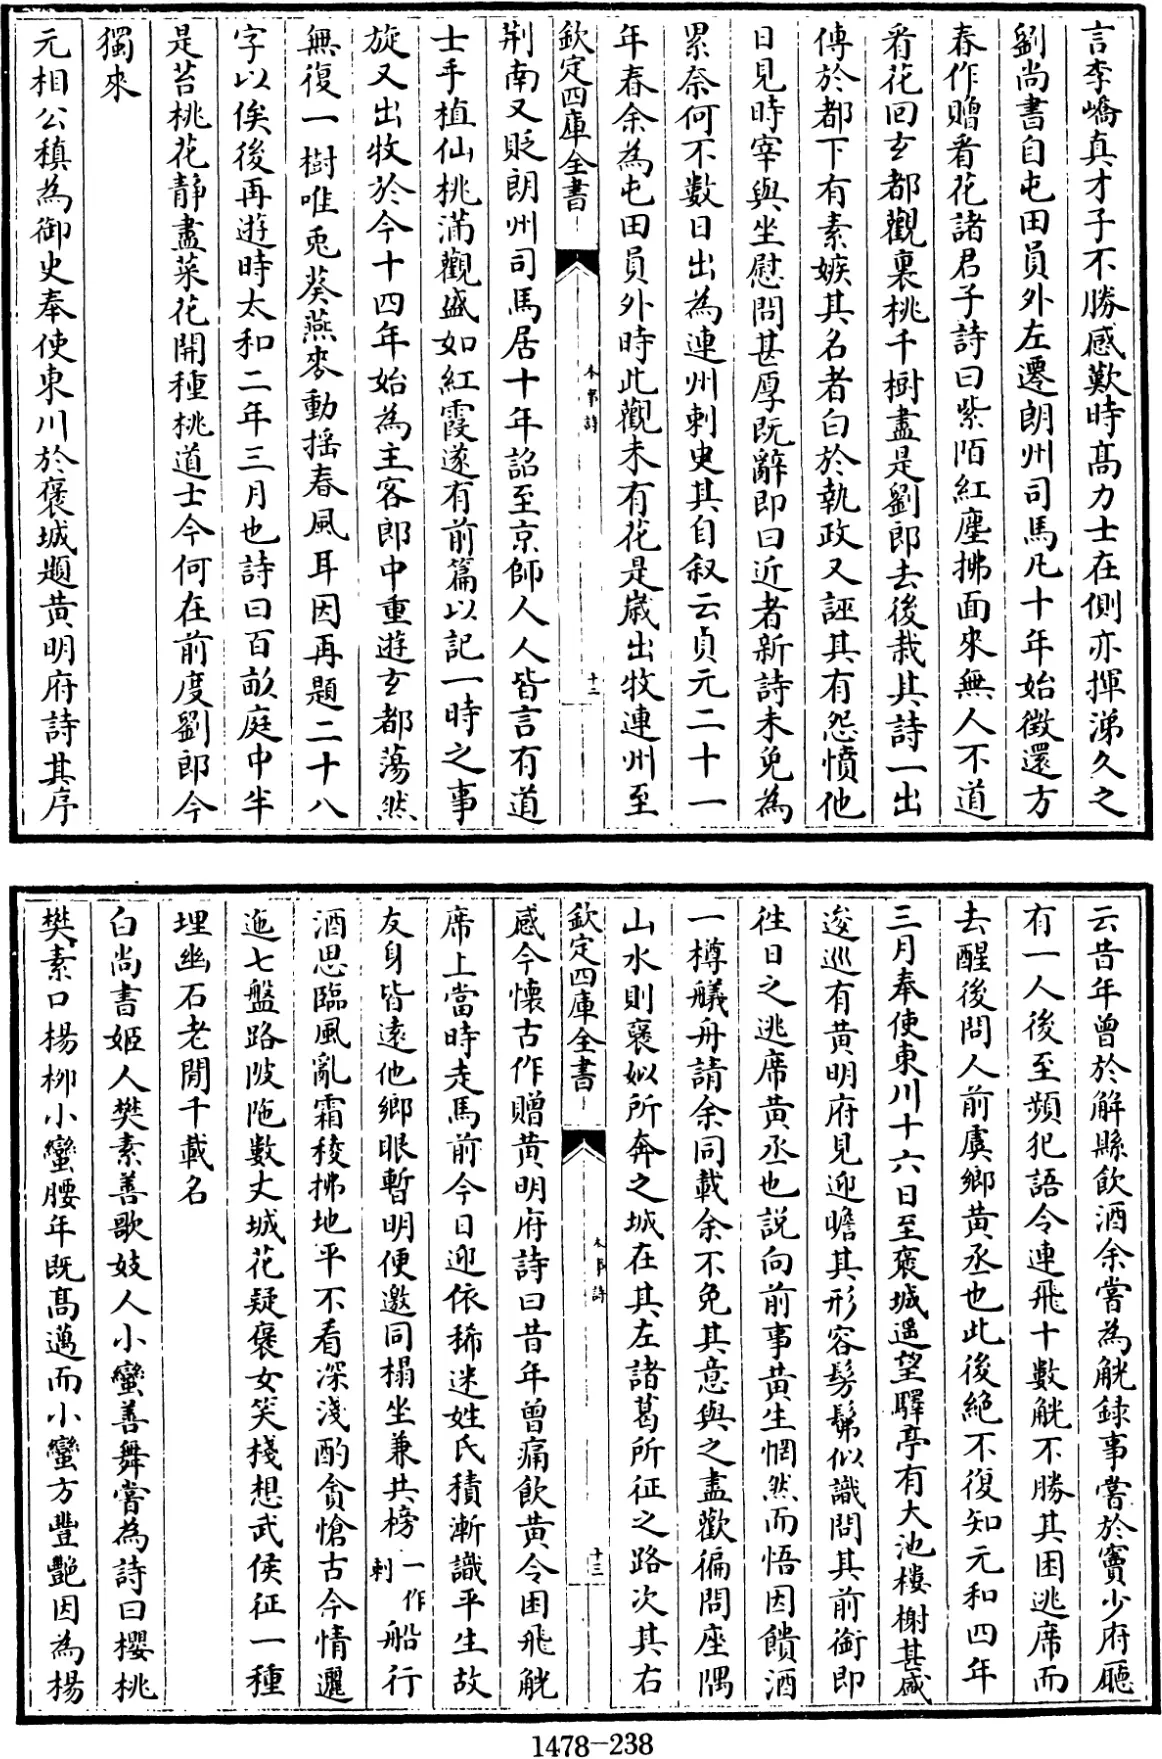 言李嶠真才子不勝感歎時高力士在側亦揮涕久之
劉尚書自屯田員外左遷朗州司馬凡十年始徵還方
春作贈看花諸君子詩曰紫陌紅塵拂面來無人不道
看花回玄都觀裏桃千樹盡是劉郎去後栽其詩一出
傳於都下有素嫉其名者白於執政又誣其有怨憤他
日見時宰與坐慰問甚厚既辭即曰近者新詩未免為
累奈何不數日出為連州刺史其自叙云貞元二十一
年春余為屯田員外時此觀未有花是歲出牧連州至
欽定四庫全書
本事詩
十二
荆南又貶朗州司馬居十年詔至京師人人皆言有道
士手植仙桃滿觀盛如紅霞遂有前篇以記一時之事
旋又出牧於今十四年始為主客郎中重遊玄都蕩然
無復一樹唯兎葵燕麥動摇春風耳因再題二十八
字以俟後再遊時太和二年三月也詩曰百畝庭中半
是苔桃花靜盡菜花開種桃道士今何在前度劉郎今
獨來
元相公稹為御史奉使東川於褒城題黄明府詩其序
云昔年曾於解縣飲酒余嘗為觥録事嘗於竇少府廳
有一人後至頻犯語令連飛十數觥不勝其困逃席而
去醒後問人前虞鄉黄丞也此後絶不復知元和四年
三月奉使東川十六日至褒城遥望驛亭有大池樓榭甚盛
逡巡有黄明府見迎瞻其形容髣髴似識問其前銜即
徃日之逃席黄丞也説向前事黄生惘然而悟因饋酒
一樽艤舟請余同載余不免其意與之盡歡徧問座隅
山水則褒姒所奔之城在其左諸葛所征之路次其右
欽定四庫全書
本事詩
十三
感今懷古作贈黄明府詩曰昔年曾痛飲黄令困飛觥
席上當時走馬前今日迎依稀迷姓氏積漸識平生故
友身皆遠他鄉眼暫明便邀同榻坐兼共榜一作刺船行
酒思臨風亂霜稜拂地平不看深淺酌貪愴古今情邐
迤七盤路陂陁數丈城花疑褒女笑棧想武侯征一種
埋幽石老閒千載名
白尚書姬人樊素善歌妓人小蠻善舞嘗為詩曰櫻桃
樊素口楊柳小蠻腰年既高邁而小蠻方豐艷因為楊
1478-238